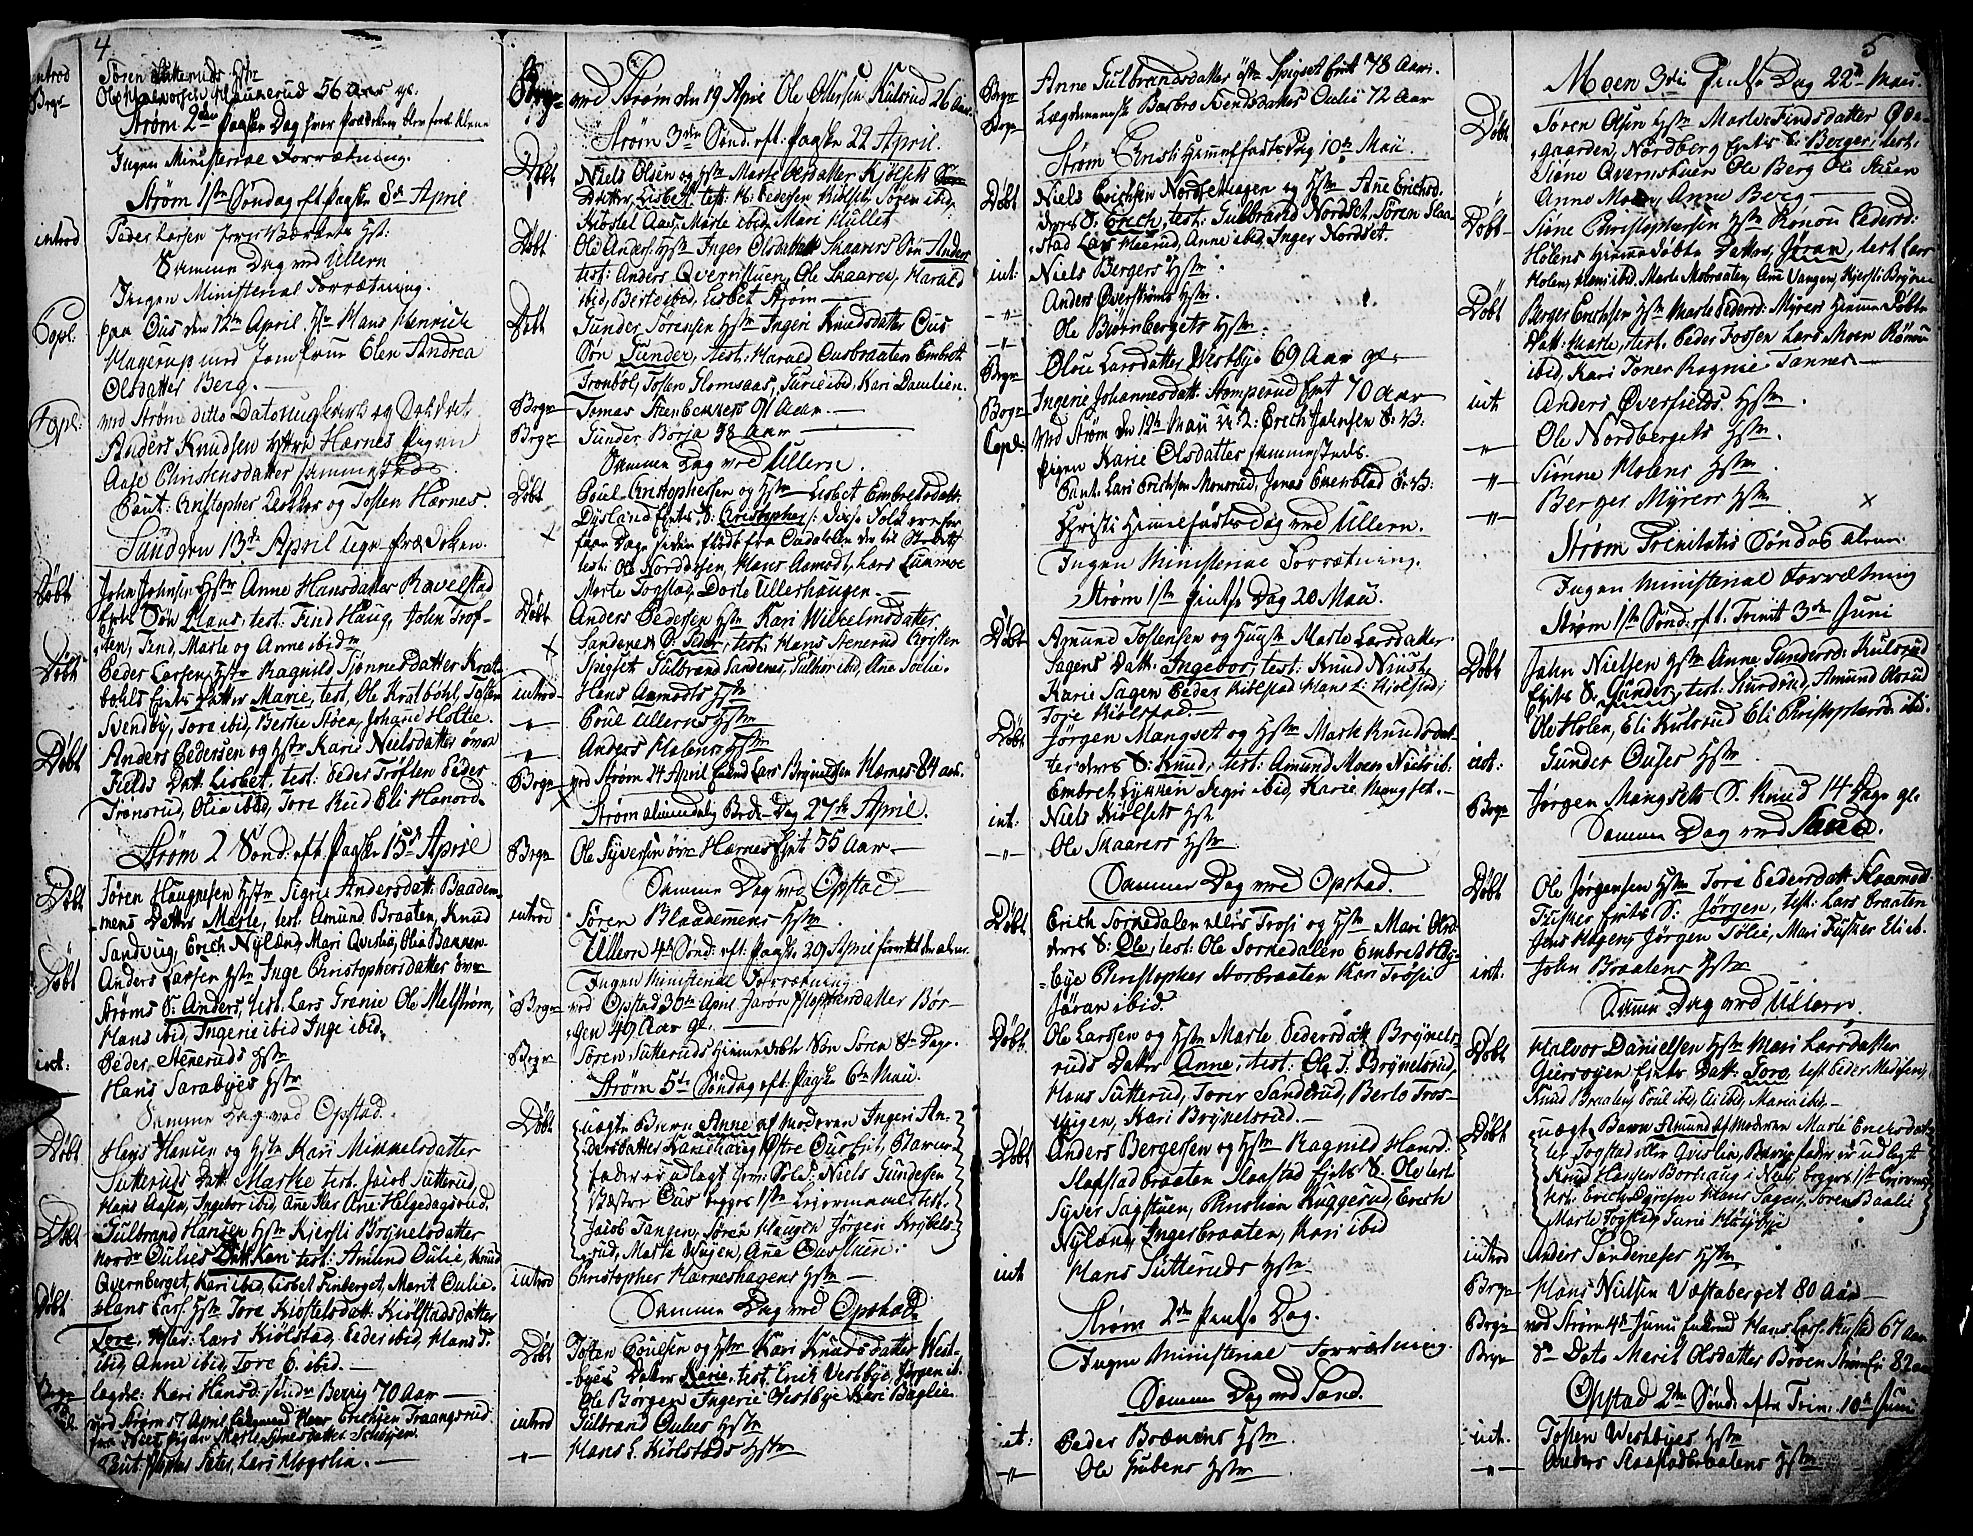 4
introd Søren Sutteruds Hstr
Begr Ole Halvorsen Maunerud 56 Aar gl.
Strøm 2den Paaske Dag hvor Prædiken blev forrt. Alene
Ingen Ministerial Forrætning.
Strøm 1ste Søndag eft Paaske 8de April
introd Peder Larsen Hstr:
Samme Dag ved Ullern
Ingen Ministerial Forrætning.
Copl. paa Ous den 12te April. Hr Hans Henrich
Hagerup med Jomfrue Elen Andrea
Olsdatter Berg.
Copl: ved Strøm ditto Dato Ungkarl og Soldat
Anders Knudsen Hærnes Pigen
Aase Christensdatter sammesteds.
Caut: Christopher Becker og Tosten Hærnes.
Sand den 13de April Ugeprædiken.
Døbt John Johnsen Hstr Anne Hansdatter Ravelstad
Ejets Søn Hans, test: Find Haug, John Trof-
ten, Find, Marte og Anne ibidm
Døbt Peder Larsen Hstr Ragnild Tiønnesdatter Krat-
bøhls Ejets Datter Marie, test, Ole Kratbøhl, Tosten
Svenbÿ, Tore ibid, Berthe Støen, Johane Holtie.
Døbt Anders Pedersen og Hstr Karie Nielsdatter øvre
Fields Datt: Lisbet, test: Peder Trøften Peder
Trønsrud, Olia ibid, Tore Kud Eli Hanord.
Strøm 2 Sønd: eft. Paaske 15de April
Døbt Søren Haagnesen Hstr Sigrie Andersdatt: Baadem-
mens Datter Marte, test: Amund Braaten, Knud
Sandvig, Erich Nylæng, Mari Qvesbÿ, Olia Bakken.
Døbt Anders Larsen Hstr Inge Christophersdatter over-
Strøms S: Anders, test: Lars Grenie Ole Melstrøm,
Hans ibid, Ingerie ibid Inge ibid.
int: Peder Steneruds Hstr
Hans Sarabÿes Hstr
Samme Dag ved Opstad.
Døbt Hans Hansen og Hstr Kari Himmelsdatter
Sutteruds Datt: Marthe test: Jacob Sutterud,
Hans Aasen, Ingebor ibid, Ane Helgedagsrud.
Døbt Gulbrand Hansen Hstr Kjersti Brÿnelsdatter
nordre Oulies Datt Kari test: Amund Oulie, Knud
Qvernberget, Kari ibid, Lisbet Finberget, Marit Oulie.
Døbt Hans Lars: Hstr Tore Kiøstelsdatt: Kiølstads datter
Tore, test: Lars Kiølstad, Peder ibid, Hans T.
ibid, Anne ibid, Tore P. ibid.
Begr lægd: Kari Hansd: søndre Berrig 70 Aar
ved Strøm 17 April Erichsen Traangsrud
Pigen Marte
Caut: Lars Klogslia.

Begr ved Strøm den 19 April Ole Ottersen Kulsrud 26 Aar.
Strøm 3die Sønd. eft: Paaske 22 April.
Døbt Niels Olsen og Hstr Marte Persdatter Kjølsets
Datter Lisbet test: H: Pedersen Kiølset, Søren ibid,
Kiøstel Aas, Marte ibid Mari Hullet
Døbt Ole Anders: Hstr Inger Olsdatter Skaarers Søn Anders
test: Anders Qvernstuen, Ole Skaarer, Harald
ibid, Berte ibid, Lisbet Strøm
Døbt Gunder Sørensen Hstr Ingeri Knudsdatter Ous
Søn Gunder, test: Harald Ousbraaten Embret
Tronbøl, Tosten Glomsaas, Gurie ibid, Kari Damlien.
Begr Tomas Steenbekkers 91 Aar.
Begr Gunder Børja 98 Aar
Samme Dag ved Ullern.
Døbt Poul Christophersen og Hstr Lisbet Embretsdatt:
Dÿsland Ejets, S: Christopher /: disse Folk ere for
faae Dage siden flÿdt fra Oudalen der til Stedet
test: Ole Norddÿsen, Hans Aamodt, Lars Lummoe
Marte Fogstad, Dorte Ullerhaugen.
Døbt Anders Pedersen Hstr Kari Wilhelmsdatter
Sandenes S: Peder, test: Hans Stenerud Christen
Spigset Gulbrand Sandenes, Gulbor ibid, Ane Tølie.
introd Hans Aamodts Hstr
-"- Poul Ullerns Hstr
-"- Anders Holens Hstr
Begr ved Strøm 24 April Lars Brÿnildsen Hærnes 84 Aar.
Strøm almindelig Bede-Dag 27de April.
Begr Ole Sÿversen øvre Hærnes Ejet 55 Aar
Samme Dag ved Opstad
introd Søren Blaademens Hstr
Ullern 4de Sønd. eft: Paaske 29 April
Ingen Ministerial Forrætning.
Begr ved Opstad 30te April Jøren Christophersdatter Bør-
gen 49 Aar gl.
Begr Søren Sutteruds Hiemedøbte Søn Søren 8te Dage.
Strøm 5te Søndag eft. Paaske 6te Maii.
Døbt uægte Barn Anne af Moderen Ingeri An-
dersdatter Østre Ous Ejet, Barne-
fader er udlagt Sold: Niels Gundersen
Væstre Ous begges 1ste Leiermaal, test:
Jacob Tangen, Søren Haugen Jørgen Krÿkels-
rud, Marte Wigen, Ane Ousstuen.
introd Christopher Hærneshagens Hstr
Samme Dag ved Opstad
Døbt Tosten Poulsen og Hstr Kari Knudsdatter West-
bÿes Datter Karie, test. Erich Vestbÿe Jørgen ib
Ole Børgen Ingerie Vestbÿe Kari Baglie
introd Gulbrand Oulies Hstr
-"- Hans L. Kiølstads Hstr

5
Begr Anne Gulbrandsdatter østre Spigset Ejet 78 Aar.
Begr Lægdlem Barbro Svendsdatter Oulie 72 Aar
Strøm Christi Himmelfarts Dag 10de Maii.
Døbt Niels Erichsen Nordsethagen og Hstr Ane Erichsd.
deres S: Erich, test: Gulbrand Nordset, Søren Slaa-
stad Lars Heerud, Anne ibid, Inger Nordset.
int: Niels Bergers Hstr
-"- Anders Øverstrøms Hstr.
-"- Ole Biørnbergets Hstr.
Begr Olou Larsdatter Westbÿe 69 Aar gl.
Begr Ingerie Johannesdatt: Stomperud Ejet 70 Aar
Copl. ved Strøm den 12te Maii Erich Johnsen
Pigen Karie Olsdatter sammesteds.
Caut. Lars Erichsen Monsrud, Jonas Enerstad
Christi Himmelfarts Dag ved Ullern.
Ingen Ministerial Forrætning.
Strøm 1ste Pintse Dag 20 Maii.
Døbt Agmund Tostensen og Hustr Marte Larsdatter
Sagens Datt: Ingebor, test: Knud Niuste
Karie Sagen Peder Kiølstad Hans L: Kiølstad,
Tore Kiølstad
Døbt Jørgen Mangset og Hstr Marte Knudsdat-
ter deres S: Knud, test: Amund Moen Niels ib:
Embret Lÿkken Sigri ibid, Karie Mangset.
int: Niels Kiølsets Hstr
-"- Ole Skaarers Hstr
Samme Dag ved Opstad.
Døbt Erich Tornedalen ellers Trosi og Hstr Mari Olsd
deres S: Ole, test: Ole Tornedalen Embret Høÿ-
bÿe Christopher Storbraaten Kari Trosie
Jøran ibid.
Døbt Ole Larssen og Hstr Marte Pedersdatt. Brÿnels-
ruds Datter Anne, test: Ole T. Brÿnelsrud,
Hans Sutterud, Torer Sanderud, Berte Tros-
viigen, Kari Brÿnelsrud.
Døbt Anders Bergersen og Hstr Ragnild Hansd:
Slaastadbraaten Slaastad Ejets S: Ole test
Sÿver Sagstuen, Christian Ruggerud, Erich
Nÿlæng, Inger braaten, Kari ibid
int Hans Sutteruds Hstr
Strøm 2den Pintse Dag.
Ingen Ministerial Forrætning.
Samme Dag ved Sand.
int: Peder Brænens Hstr
-"- Ole Grubens Hstr

Moen 3die Pintse Dag 22de Maii
Døbt Søren Aspn Hstr Marte Findsdatter Qve-
gaarden, Nordberg Ejets S: Berger, test.
Siøne Qvernstuen Ole Berg Ole Stuen
Anne Moen, Anne Berg
Døbt Siøne Christophersen Hstr Ronou Pedersd:
Holens Hiemmedøbte Datter, Jøran, test Lars
Holen, Hans ibid. Marte Mobraaten, Ane Vangen, Kjersti Brøne
Døbt Berger Erichsen Hstr Marte Pedersd: Mÿrens Hiemmedøbte
Datt: Marte, test. Peder Fossen Lars Moen Rønou
ibid, Kari Toner Ragnie Tannes
int Anders Øverfields Hstr.
-"- Ole Nordbergets Hstr.
-"- Siønne Holens Hstr
-"- Berger Mÿrens Hstr
Strøm Trinitatis Søndag alene.
Ingen Ministerial Forrætning
Strøm 1ste Sønd. eft. Trinit 3die Juni
Døbt John Nielsen Hstr Anne Gundersd: Kulsrud
Ejets S: Gunder, test: Amund Olsrud
Ole Holen, Eli Kulsrud Eli Christophersd. ibid.
int: Gunder Ouses Hstr
Begr Jørgen Mangsets S. Knud 14 Dage gl.
Samme Dag ved Sand.
Døbt Ole Jørgensen Hstr Tore Pedersdatt. Kaamod-
Fisker Ejets S: Jørgen, test: Lars Braaten
Jens Hagen, Jørgen Tølie, Mari Fisker Eli ib.
int. John Braatens Hstr
Samme Dag ved Ullern.
Døbt Halvor Danielsen Hstr Mari Larsdatter
Giersøÿen Ejets Datt: Tore, test Peder
Knud Braaten, Poul ibid, Eli ibid, Maria ibid.
Døbt uægte Barn Amund af Moderen Marte Enersdat-
ter Fogstad eller Qvislia, Barnefader er udlagt
Knud Hansen Borhaug i Næs, begges 1ste
test. Erich Dÿresen Hans Sagen, Søren Baalie
Marte Fogstad, Gurie Høÿbÿe
introd Anders Sandeneses Hstr
Begr Hans Nielsen Væstaberget 80 Aar
Begr ved Strøm 4de Junii Hans Lars: Rustad 67 Aar
Begr do Dato Marit Olsdatter Brøen Strøm Ej 82 Aar
Opstad 2den Sønd: efter Trin: 10de Juni
int. Tosten Westbÿes Hstr
-"- Anders Slaastadbraatens Hstr